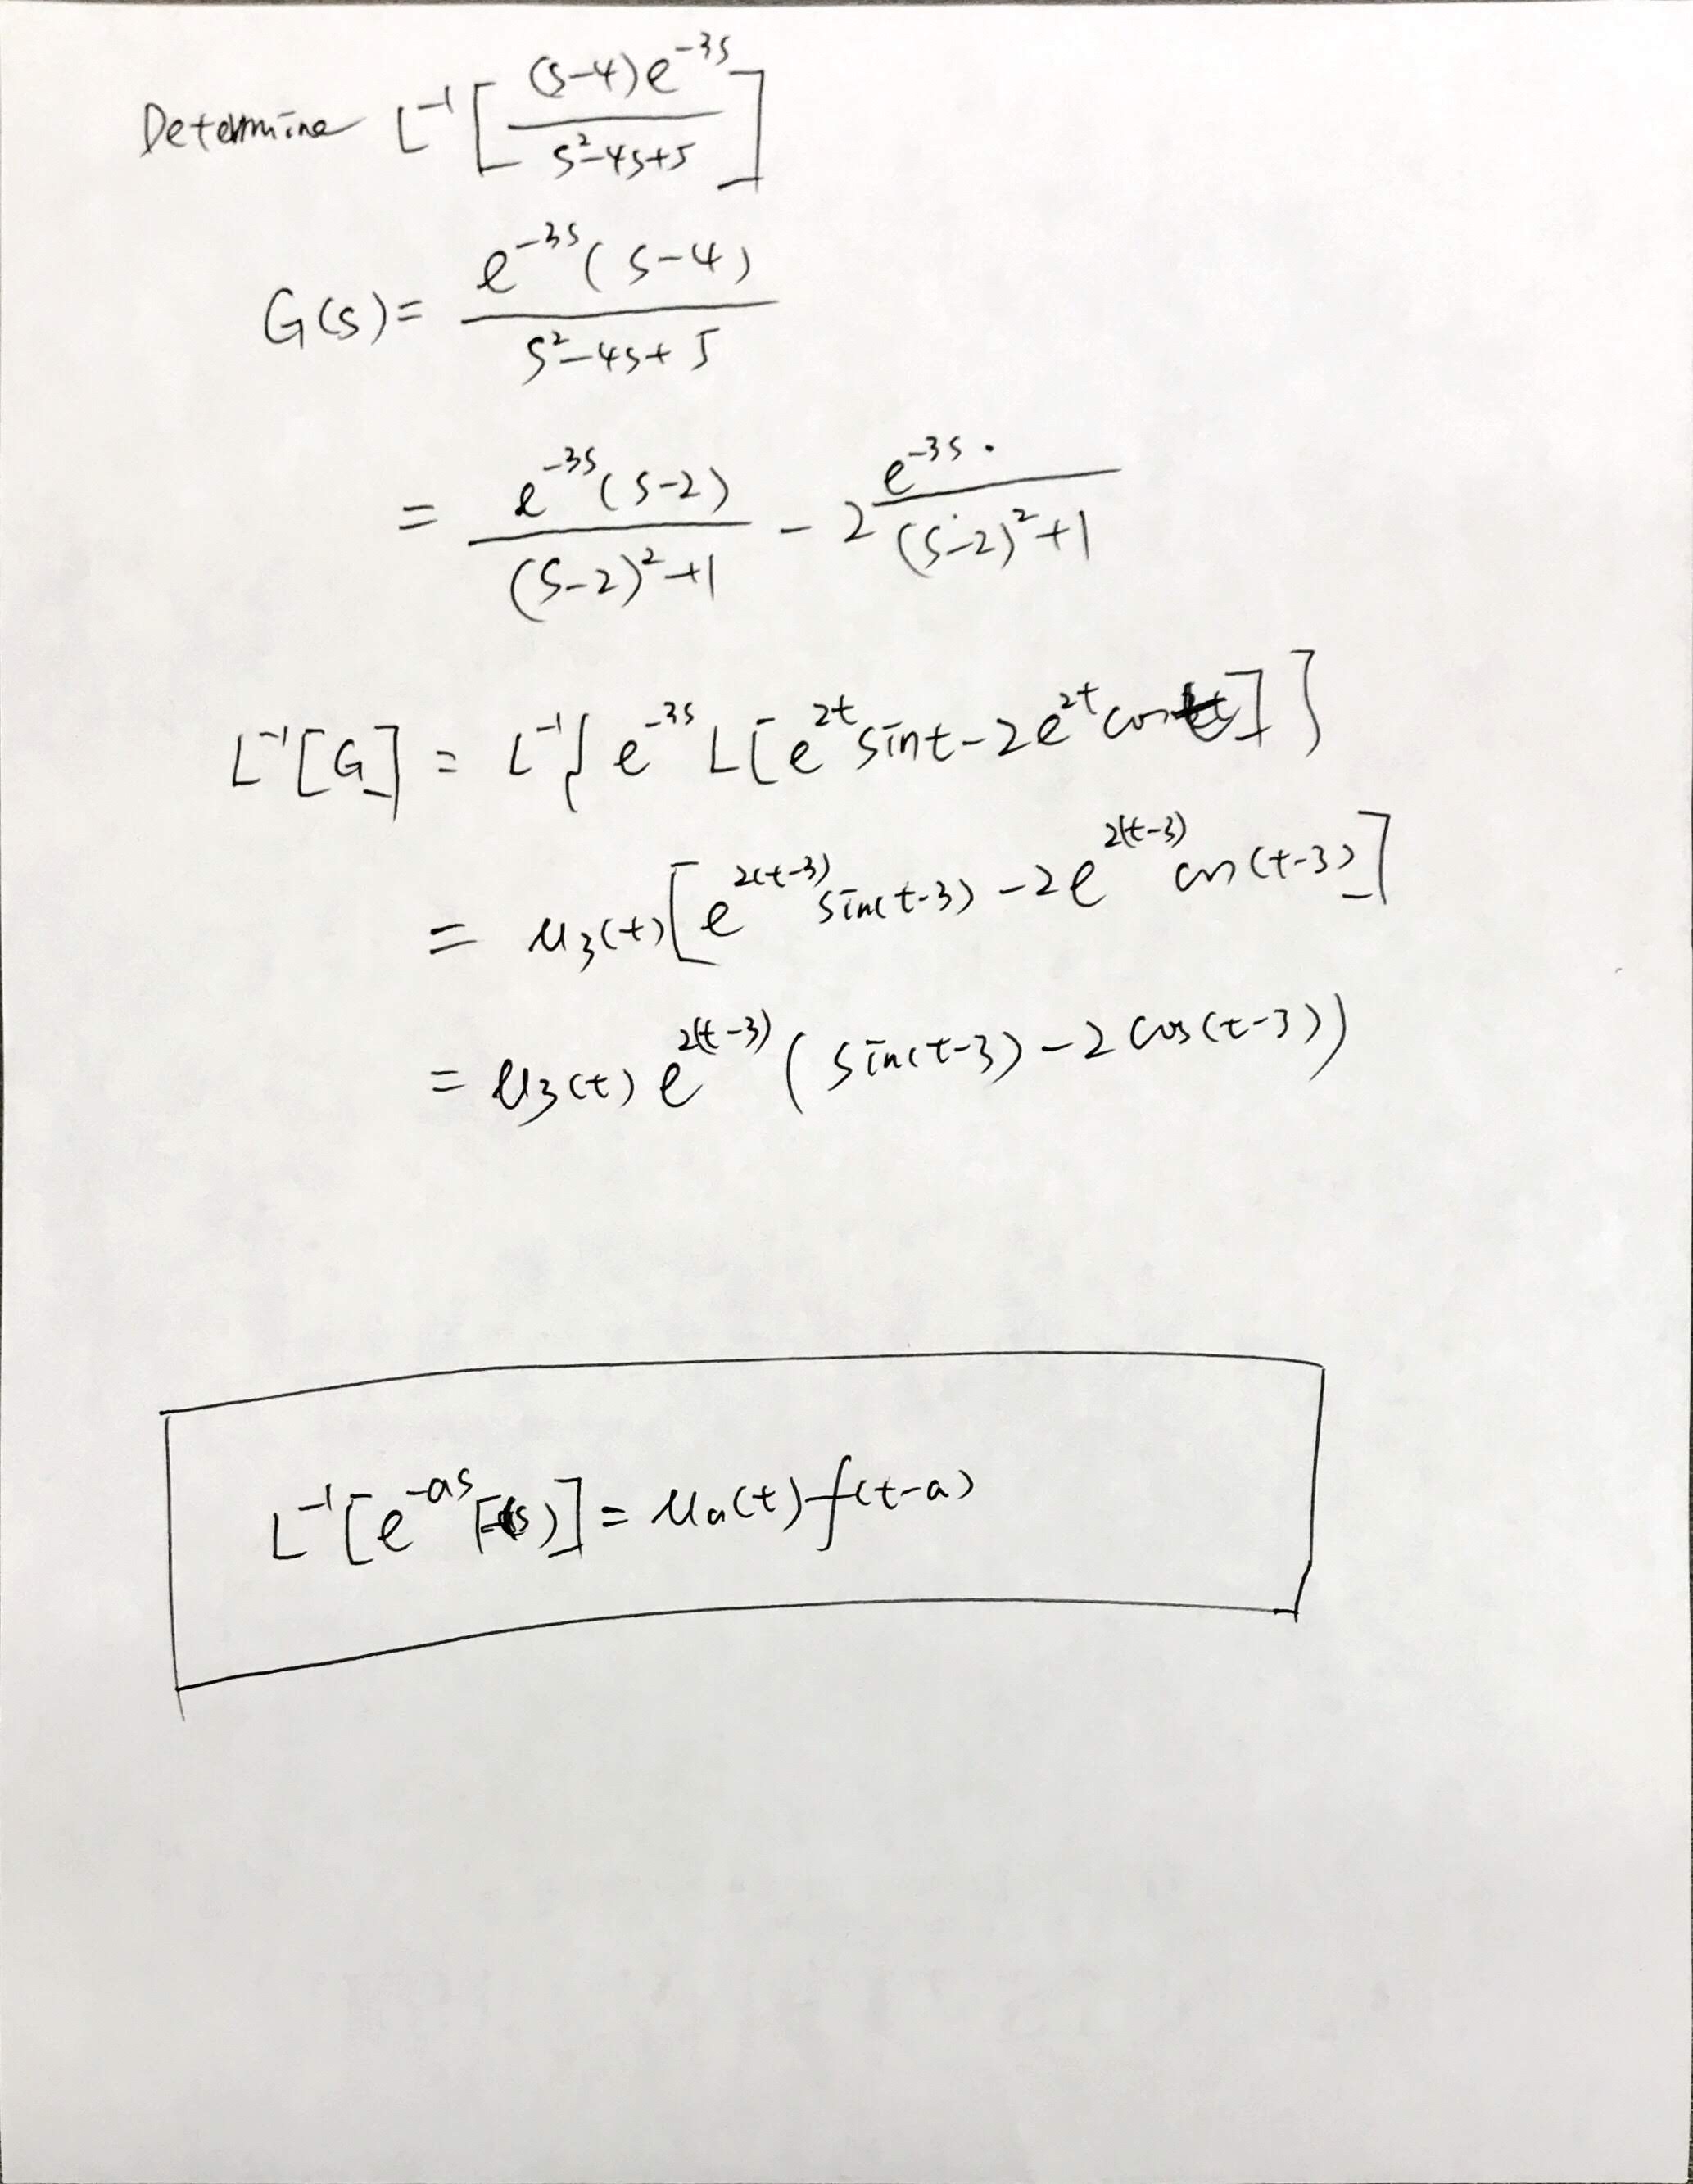 Determine L⁻¹[(s-4)e^{-3s} / s²-4s+5]
G(s) = e^{-3s}(s-4) / s²-4s+5
= e^{-3s}(s-2) / (s-2)²+1 - 2 e^{-3s} / (s-2)²+1
L⁻¹[G] = L⁻¹{e^{-3s} L[e^{2t} sint - 2e^{2t} cost]}
= u₃(t)[e^{2(t-3)} sin(t-3) - 2e^{2(t-3)} cos(t-3)]
= u₃(t) e^{2(t-3)} (sin(t-3) - 2cos(t-3))
L⁻¹[e^{-as}F(s)] = uₐ(t) f(t-a)